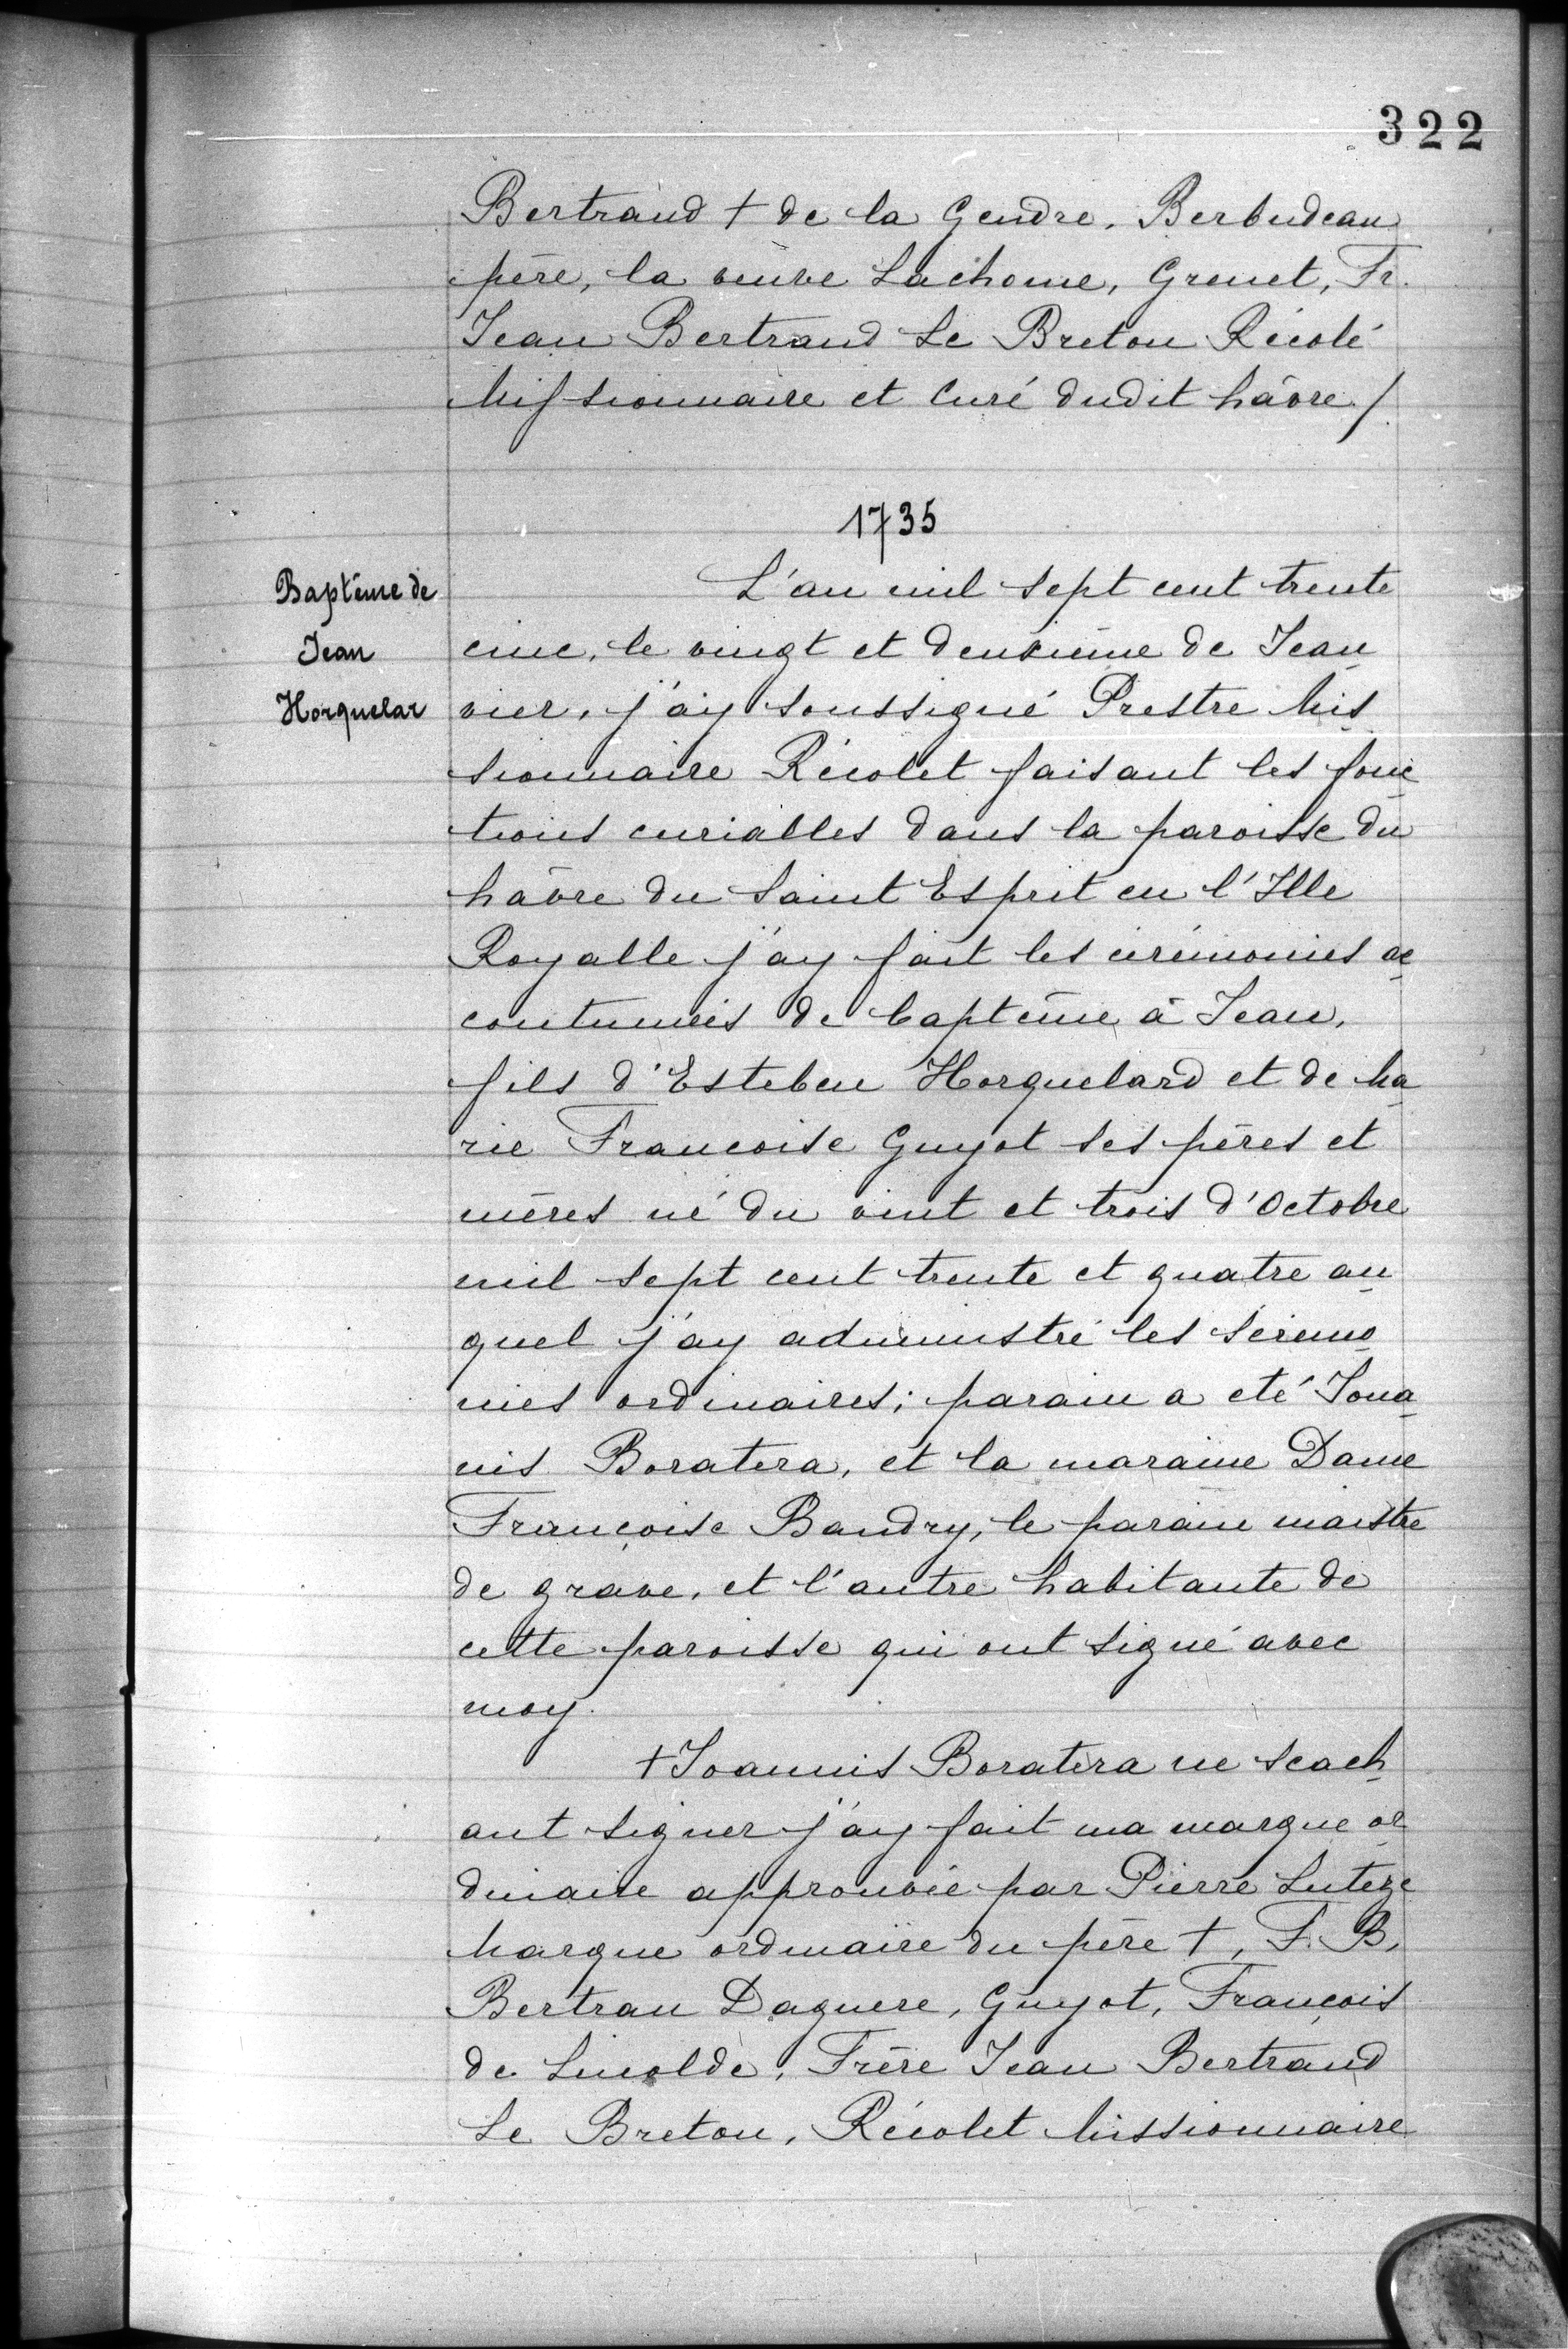 322
Bertrand + de la Gendre, Berbudeau
père, la veuve Lachome, Grenet, Fr.
Jean Bertrand Le Breton Récolé
Missionnaire et Curé dudit hâvre /.
1735
Baptême de
Jean
Horguelar
L'an mil sept cent trente
cinc, le vingt et deuxième de Jean
vier, j'ay soussigné Prestre Mis
sionnaire Récolet faisant les fonc
tions curialles dans la paroisse du
hâvre du Saint Esprit en l'Ille
Royalle j'ay fait les cérémonies ac
coutumeés de baptême à Jean,
fils d'Esteben Horguelard et de Ma
rie Francoise Guyot ses pères et
mères né du vint et trois d'Octobre
mil sept cent trente et quatre au
quel j'ay administré les séremo
nies ordinaires; parain a eté Joua
nis Boratera, et la maraine Dame
Françoise Baudry, le parain maistre
de grave, et l'autre habitante de
cette paroisse qui ont signé avec
moy.
+ Joannis Boratera ne scach
ant signer j'ay fait ma marque or
dinaire approuvée par Pierre Lutege
Marque ordinaire du père +, F. B.
Bertran Daguere, Guyot, François
de Lincolde, Frère Jean Bertrand
Le Breton, Récolet Missionnaire